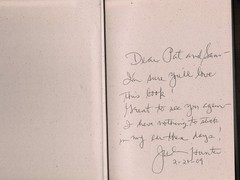 Dear Pat and Sam –
I'm sure you'll love
this book!
Great to see you again –
I have nothing to
in my days!
Hunter
2-21-09